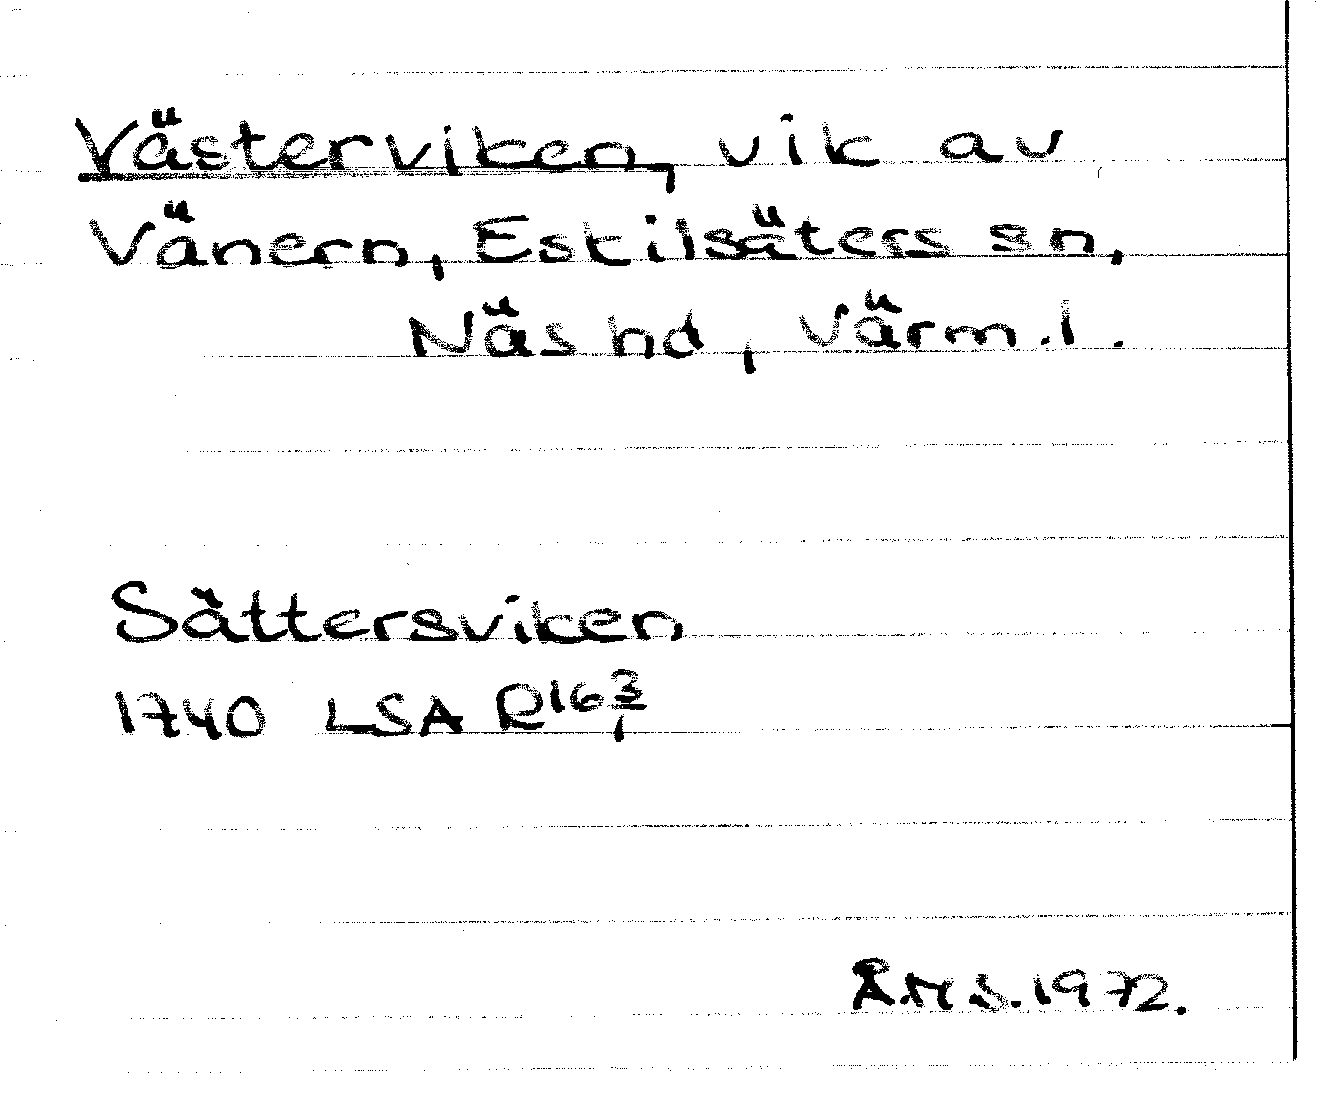 Västerviken, vik av
Vänern, Eskilsäters sn,
Näs hd, Värm.l.
Sättersviken
1740 LSA R16 3/1
Å.H.S. 1972.